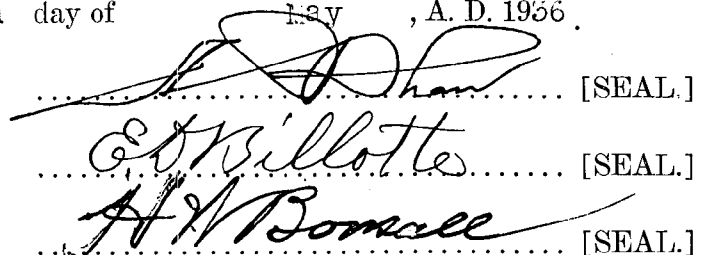 day of May , A. D. 1936.
Shaw [SEAL.]
E D Billotte [SEAL.]
H W Bonsall [SEAL.]